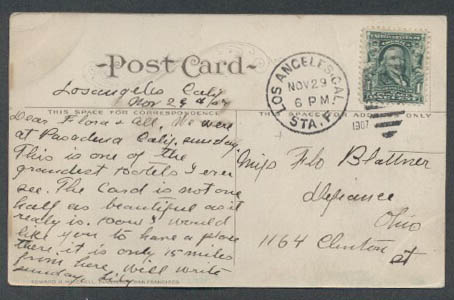 Post Card
THIS SPACE FOR CORRESPONDENCE
THIS SPACE FOR ADDRESS ONLY
LOS ANGELES, CAL.
NOV 29
6 PM
STA. F.
1907
Losangeles Calif
Nov 29th/07
Dear Flora & all, We were
at Pasadena Calif, sunday
This is one of the
grandest hotels I ever
see. The Card is not one
half as beautiful as it
really is. I would
like you to have a place
there, it is only 15 miles
from here, will write
sunday, Lily
Miss Flo Blattner
Defiance
Ohio
1164 Clinton st
EDWARD H. MITCHELL, SAN FRANCISCO